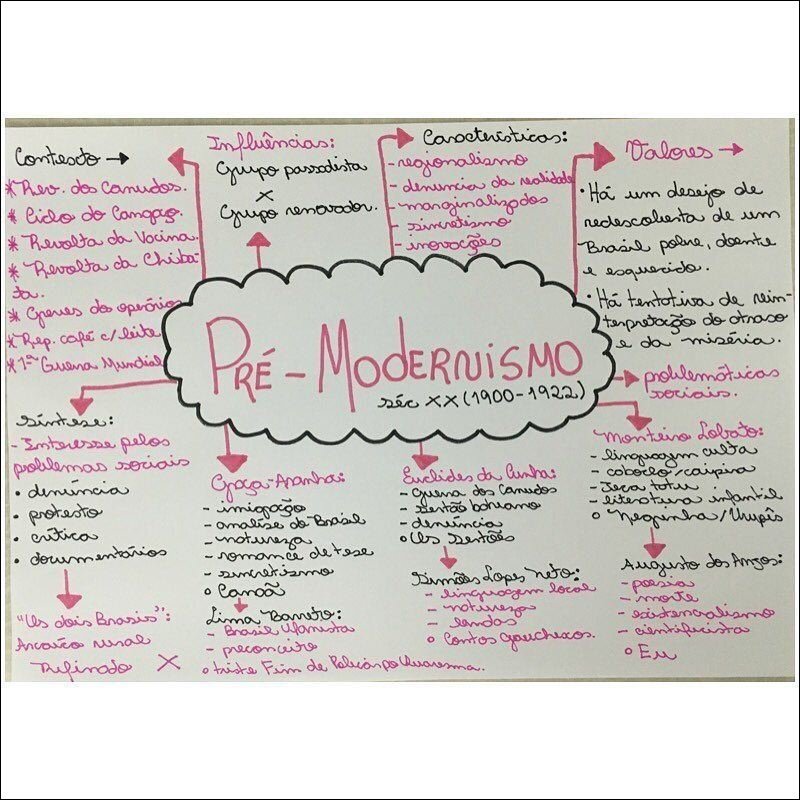 Contexto →
* Rev. dos Canudos.
* Ciclo do Cangaço.
* Revolta da Vacina.
* Revolta da Chiba-
ta.
* Greves do operários
* Rep. café c/ leite
* 1ª Guerra Mundial
Influências:
Grupo passadista
X
Grupo renovador.
Características:
- regionalismo
- denuncia da realidade
- marginalizados
- sincretismo
- inovações
Valores →
• Há um desejo de
redescoberta de um
Brasil pobre, doente
e esquecido.
• Há tentativa de rein-
terpretação do atraso
e da miséria.
PRÉ-MODERNISMO
séc XX (1900-1922)
problemáticas
sociais.
Síntese:
- Interesse pelos
problemas sociais
• denúncia
• protesto
• crítica
• documentários
"Os dois Brasis":
Arcaico rural
Refinado X
Graça-Aranha:
- imigração
- analise do Brasil
- natureza
- romance de tese
- sincretismo
o Canaã
Lima Barreto:
- Brasil Ufanista
- preconceito
o triste Fim de Policarpo Quaresma.
Euclides da Cunha:
- guerra dos Canudos
- sertão bahiano
- denúncia
o Os Sertões
Simões Lopes Neto:
- linguagem local
- natureza
- lendas
o Contos Gauchescos.
Monteiro Lobato:
- linguagem culta
- caboclo/caipira
- Jeca tatu
- literatura infantil
o Neginha/Urupês
Augusto dos Anjos:
- poesia
- morte
- existencialismo
- cientificista
o Eu